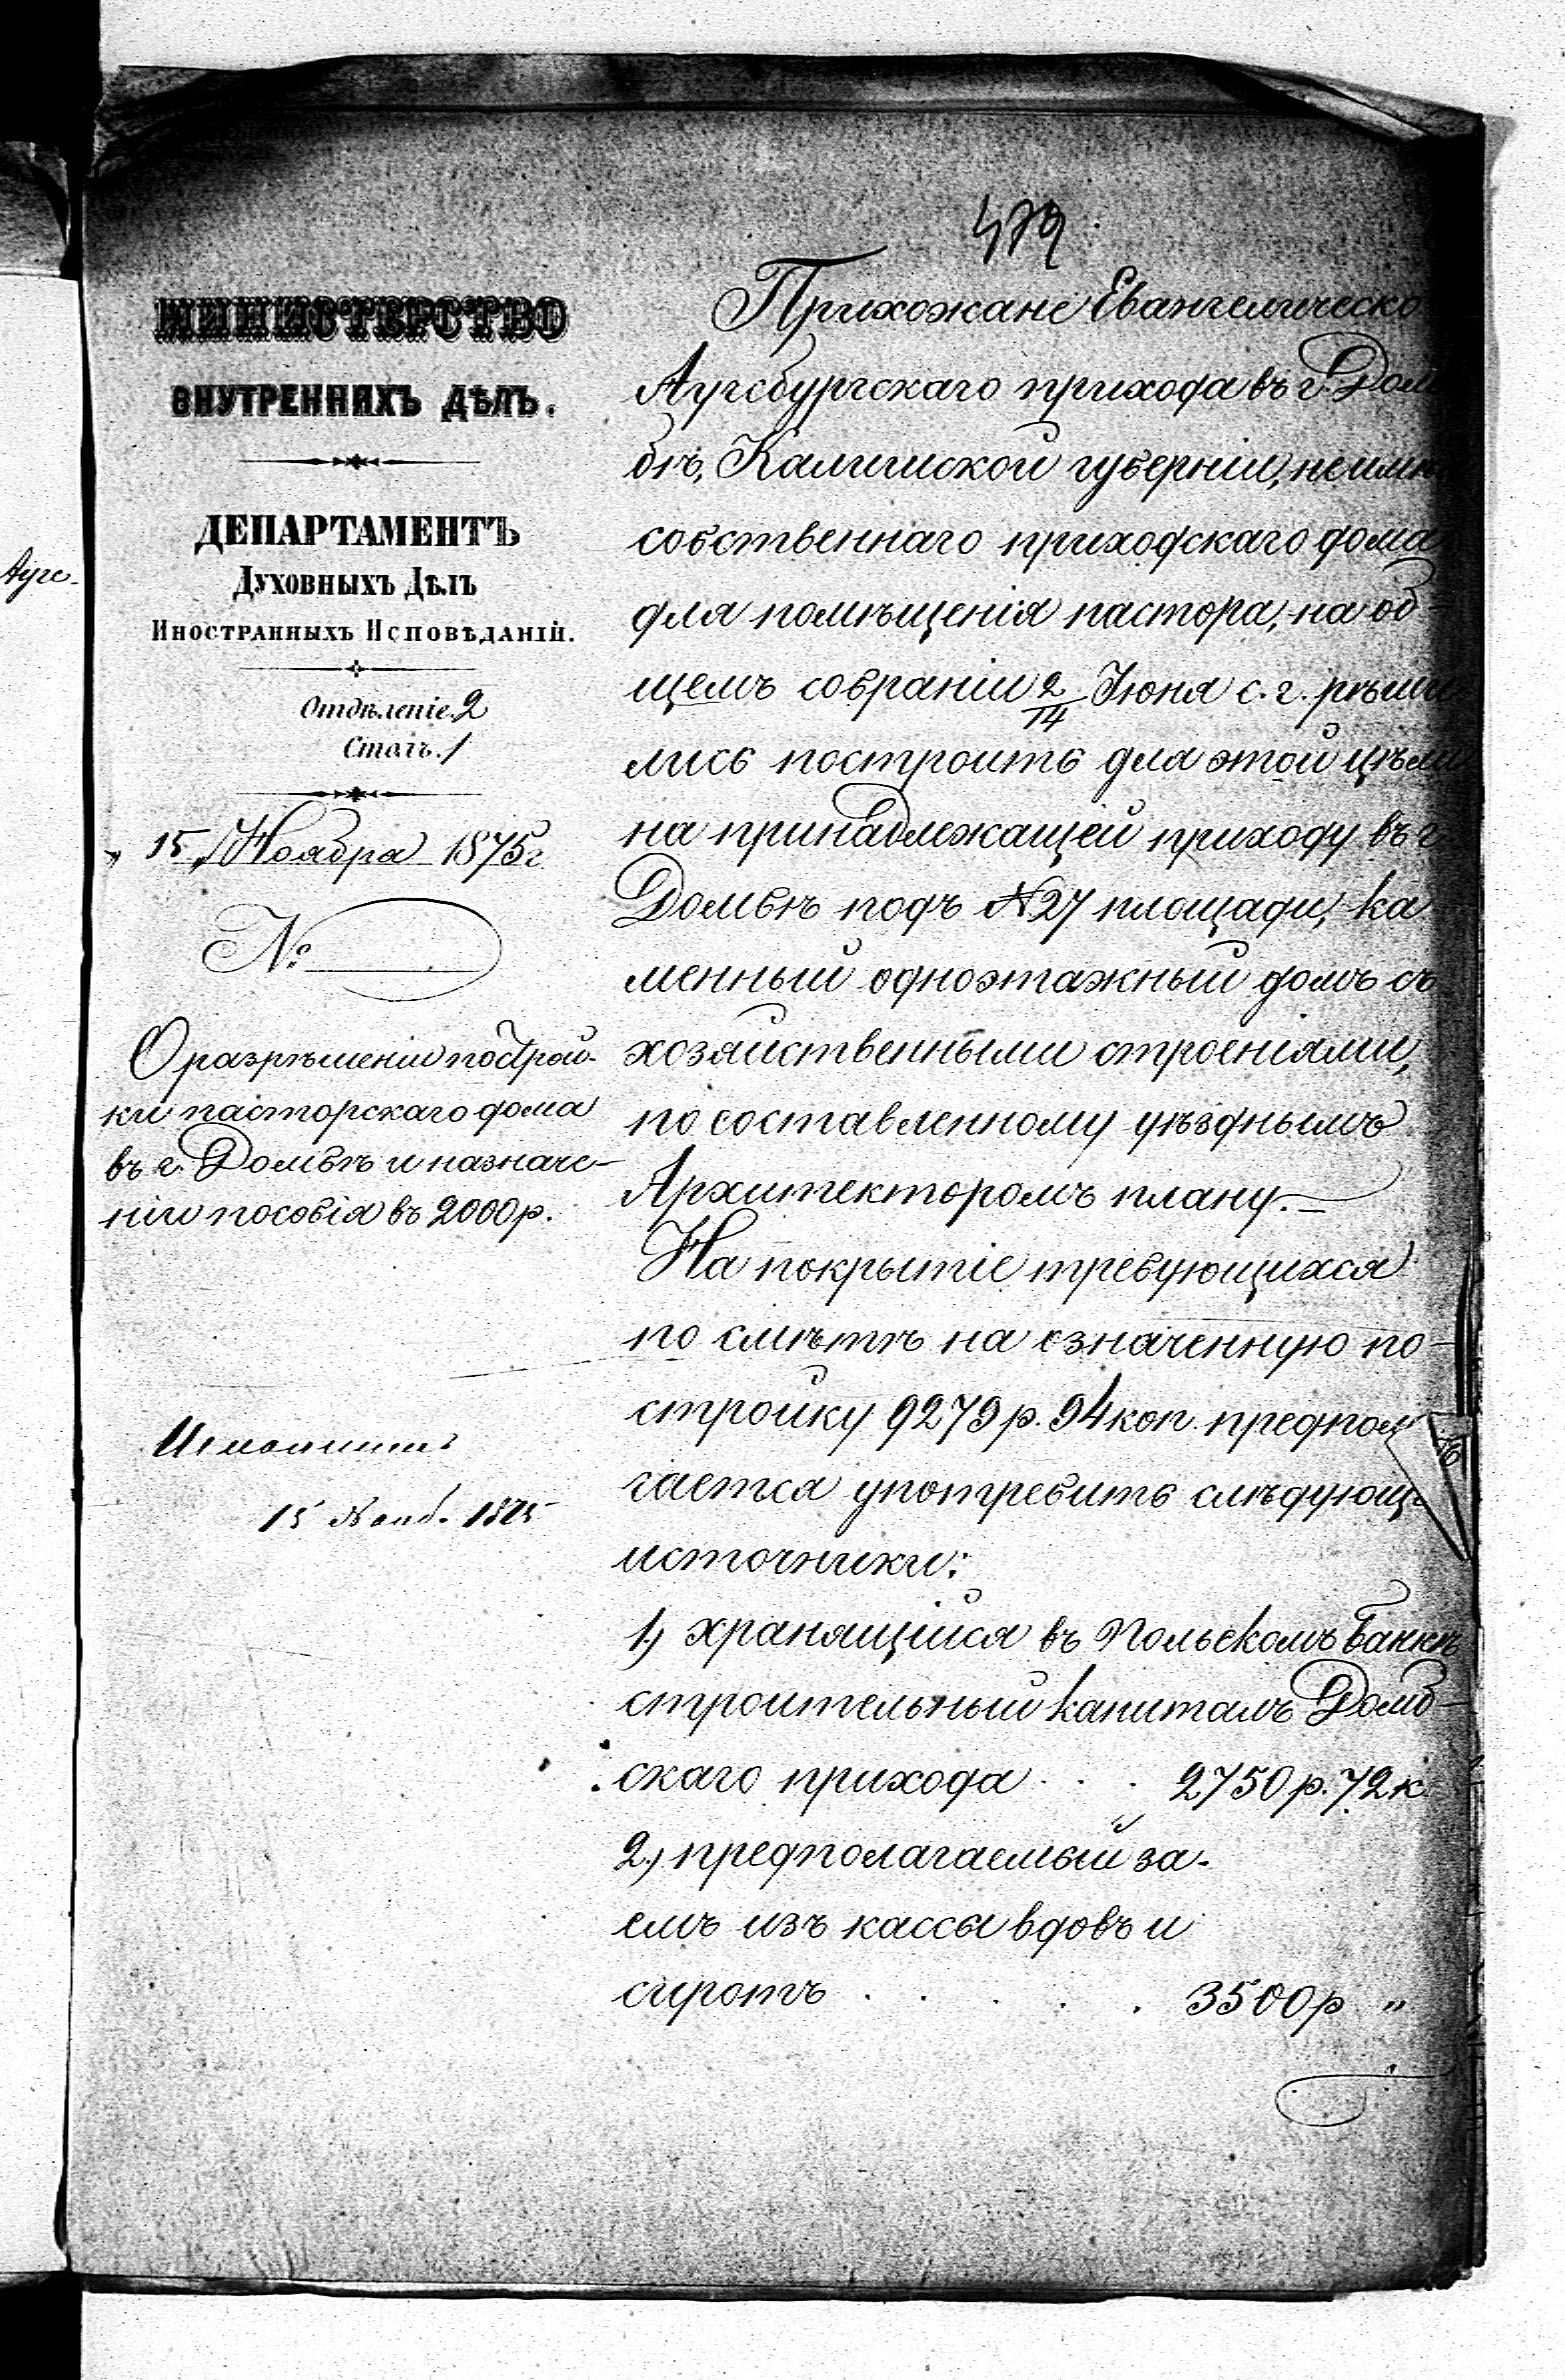 479
МИНИСТЕРСТВО
ВНУТРЕННИХЪ ДѢЛЪ.
ДЕПАРТАМЕНТЪ
Духовныхъ Дѣлъ
Иностранныхъ Исповѣданій.
Отдѣленіе 2
Столъ 1
„ 15 „ Ноября 1875 г.
№
О разрѣшеніи построй-
ки пасторскаго дома
въ г. Домбѣ и назначе-
ніи пособія въ 2000 р.
Исполнить
15 Нояб. 1875
Прихожане Евангелическо
Аугсбургскаго прихода въ г. Дом
бѣ, Калишской губерніи, не имѣ
собственнаго приходскаго дома
для помѣщенія пастора, на об-
щемъ собраніи 2/14 Іюня с. г. рѣши
лись построить для этой цѣли
на принадлежащей приходу въ г.
Домбѣ подъ № 27 площади, ка
менный одноэтажный домъ съ
хозяйственными строеніями,
по составленному уѣзднымъ
Архитекторомъ плану.
На покрытіе требующихся
по смѣтѣ на означенную по-
стройку 9279 р. 94 коп. предпола
гается употребить слѣдующі
источники:
1) хранящійся въ Польскомъ Банкѣ
строительный капиталъ Домб-
скаго прихода . . . 2750 р. 72 к.
2) предполагаемый за-
емъ изъ кассы вдовъ и
сиротъ . . . . . 3500 р „
Аугс-